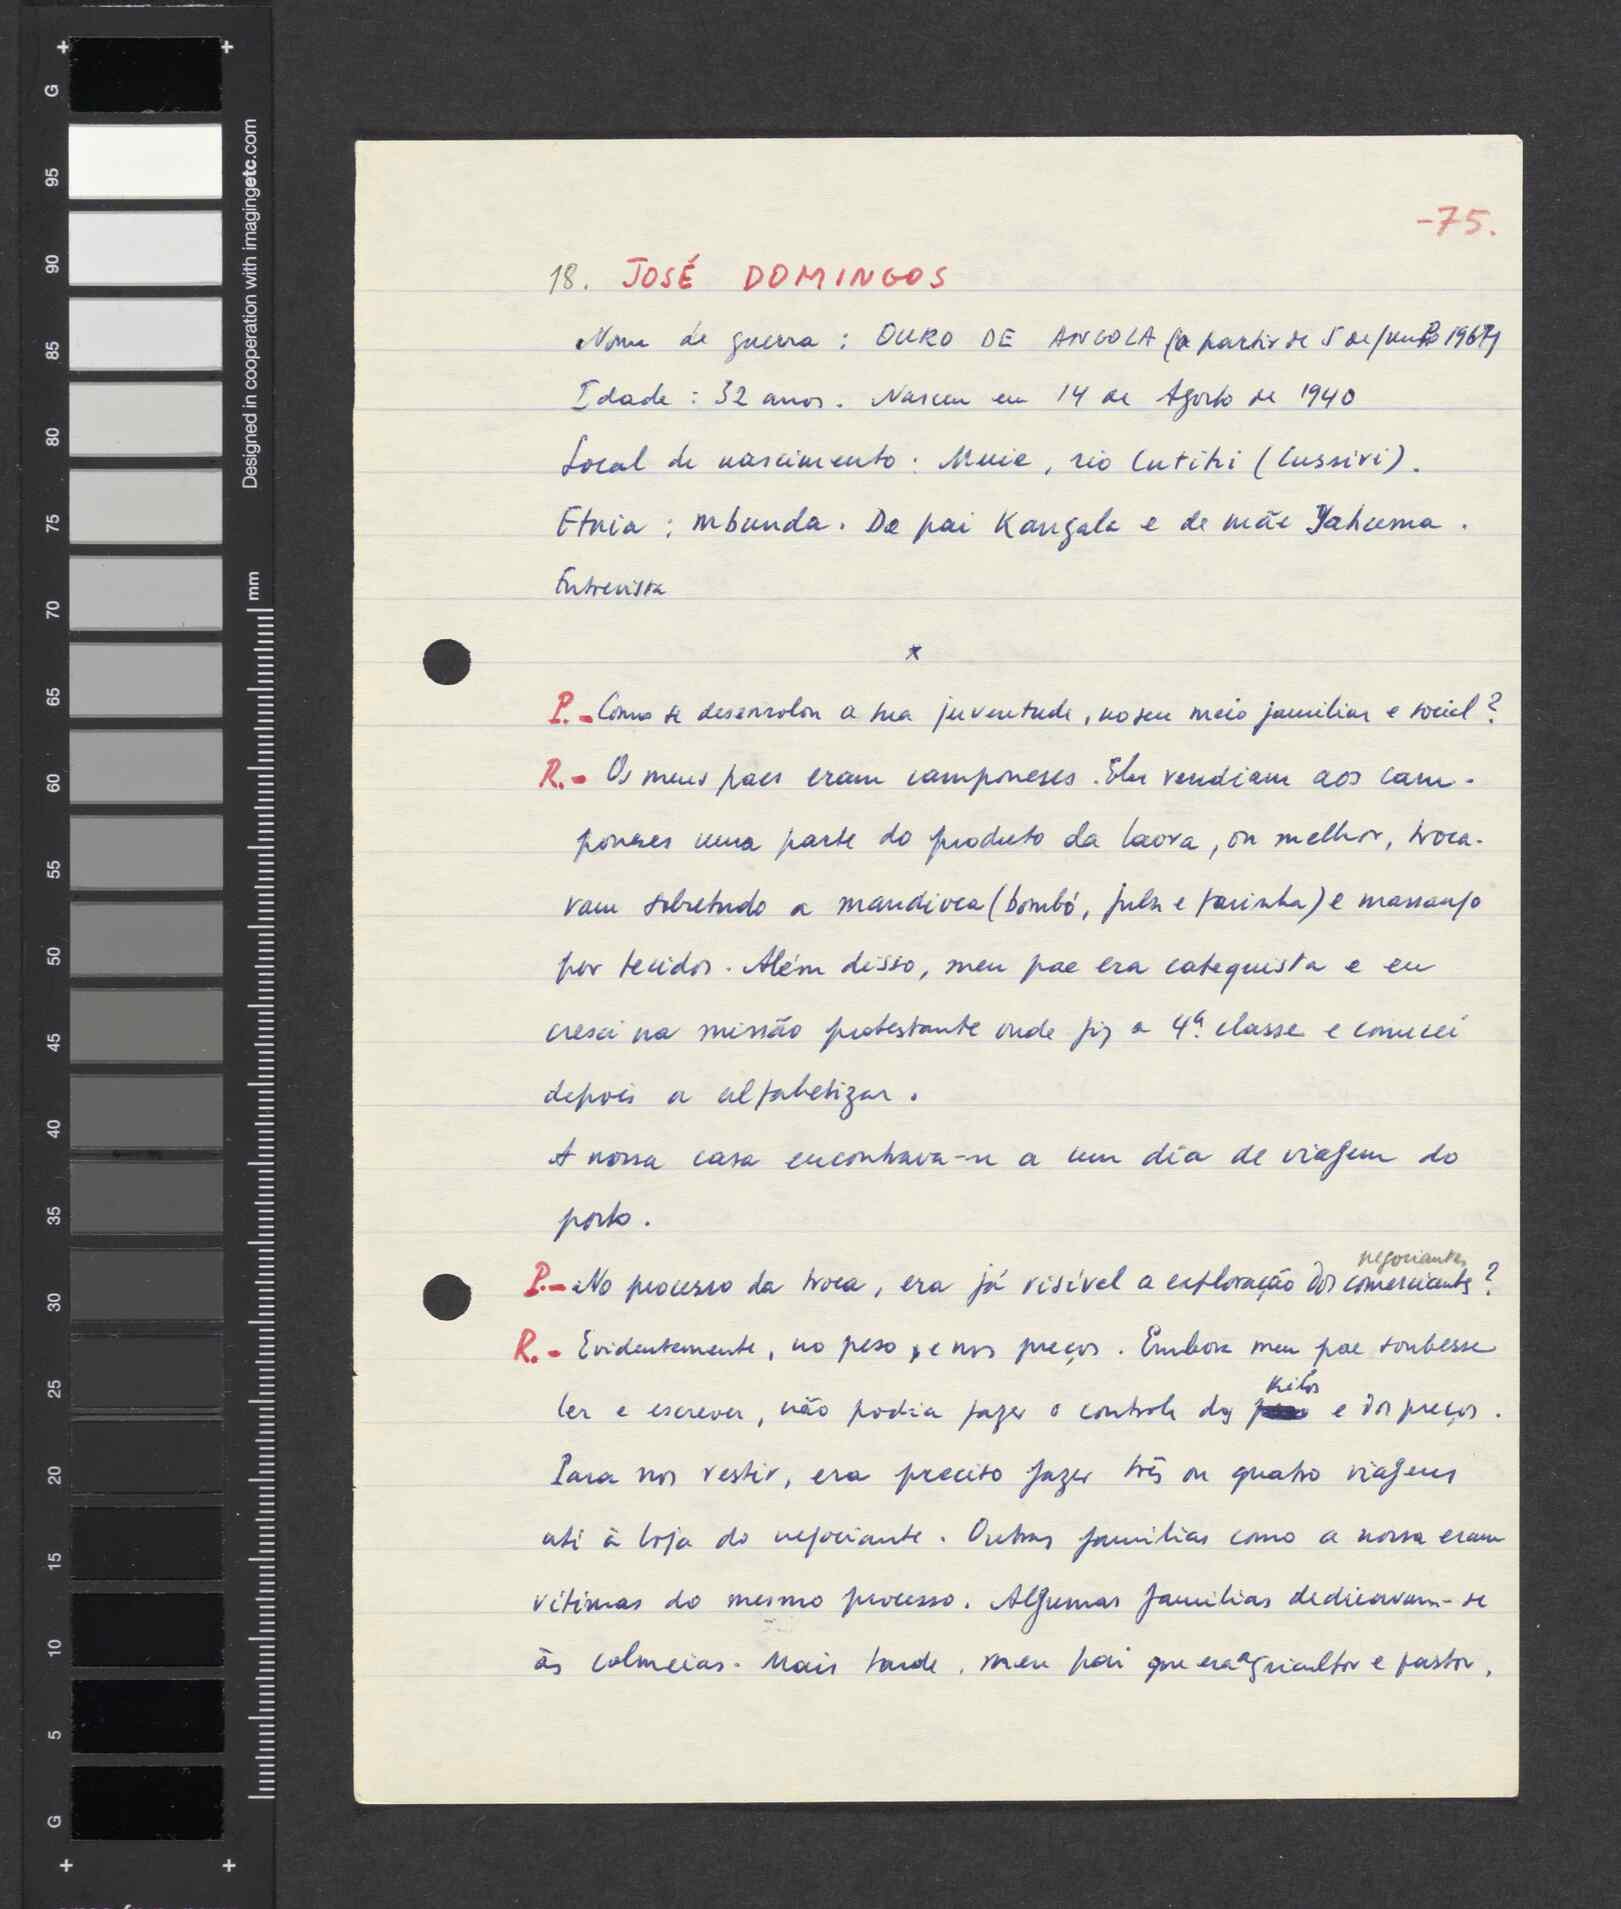 -75.
18. JOSÉ DOMINGOS
Nome de guerra : OURO DE ANGOLA (a partir de 5 de 1967)
Idade : 32 anos. Nasceu em 14 de Agosto de 1940
Local de nascimento : Muie, rio Cutiti (Cussivi).
Etnia : mbunda. De pai Kangala e de mãe Yahuma.
Entrevista
x
P.- Como se desenrolou a sua juventude, no seu meio familiar e social?
R.- Os meus paes eram camponeses. Eles vendiam aos cam-
poneses uma parte do produto da lavra, ou melhor, troca-
vam sobretudo a mandioca (bombó, fuba e farinha) e massango
por tecidos. Além disso, meu pae era catequista e eu
cresci na missão protestante onde fiz a 4ª classe e comecei
depois a alfabetizar.
A nossa casa encontrava-se a um dia de viagem do
posto.
negociantes
P.- No processo da troca, era já visível a exploração dos comerciantes?
R.- Evidentemente, no peso, e nos preços. Embora meu pae soubesse
kilos
ler e escrever, não podia fazer o controle dos e dos preços.
Para nos vestir, era preciso fazer três ou quatro viagens
até à loja do negociante. Outras familias como a nossa eram
vítimas do mesmo processo. Algumas familias dedicavam-se
às colmeias. Mais tarde, meu pai que era agricultor e pastor,
G
95
90
85
80
75
70
65
60
55
50
45
40
35
30
25
20
15
10
5
G
Designed in cooperation with imagingetc.com
mm